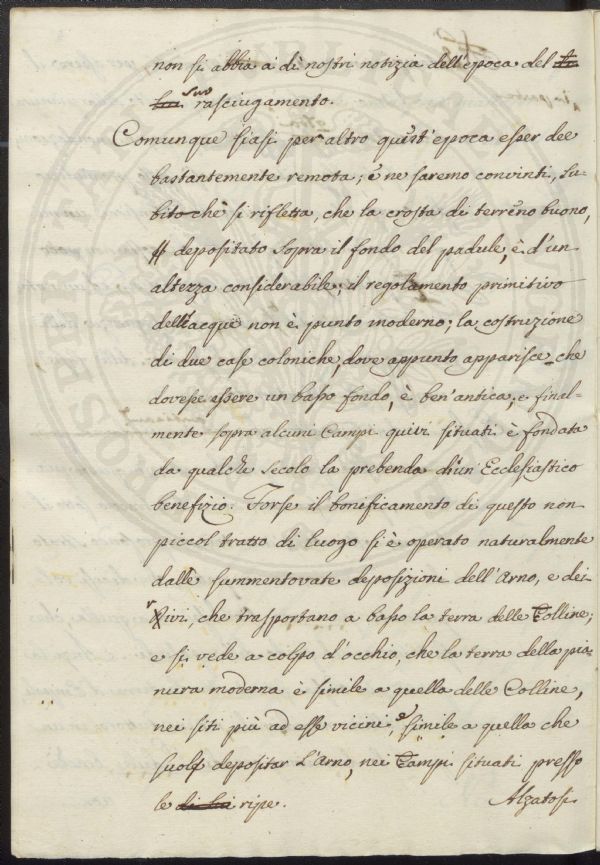 non si abbia a dì nostri notizia dell'epoca del
suo rasciugamento.
Comunque siasi per altro quest'epoca esser dee
bastantemente remota; e ne saremo convinti, su-
bito chè si rifletta, che la crosta di terreno buono,
depositato sopra il fondo del padule, è d'un
altezza considerabile; il regolamento primitivo
dell'acque non è punto moderno; la costruzione
di due case coloniche, dove appunto apparisce che
dovesse essere un basso fondo, è ben'antica; e final-
mente sopra alcuni Campi quivi situati è fondata
da qualche secolo la prebenda d'un Ecclesiastico
benefizio. Forse il bonificamento di questo non
piccol tratto di luogo si è operato naturalmente
dalle summentovate deposizioni dell'Arno, e dei
rivi, che trasportano a basso la terra delle Colline;
e si vede a colpo d'occhio, che la terra della pia-
nura moderna è simile a quella delle Colline,
nei siti più ad esse vicini, e simile a quella che
suole depositar l'Arno, nei Campi situati presso
le di lui ripe.
Alzatosi